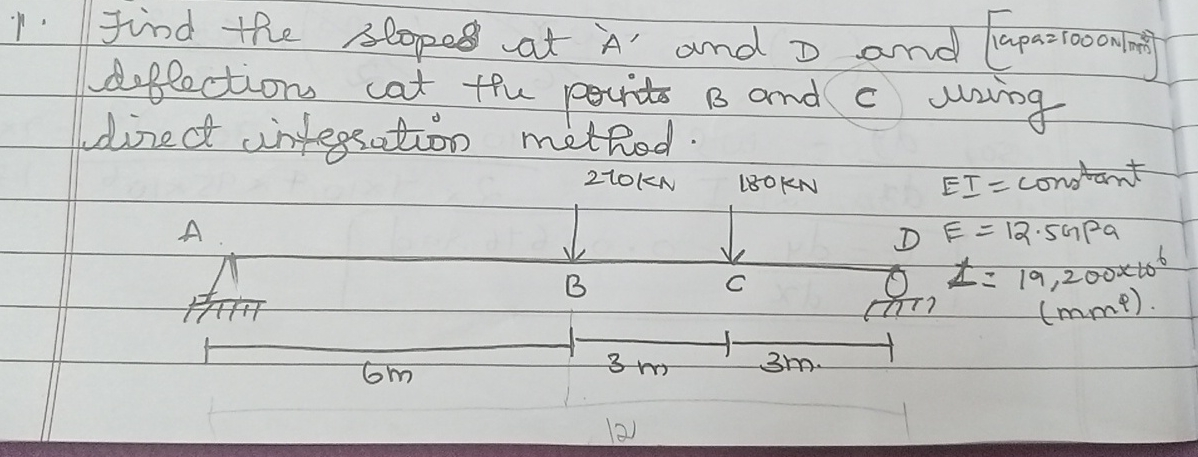 1. Find the slopes at 'A' and D and [1GPa=1000N/mm²]
deflections at the points B and C using
direct integration method.
270KN 180KN EI = constant
A D E = 12.5GPa
B C I = 19,200x10⁶
(mm⁴).
6m 3m 3m.
12